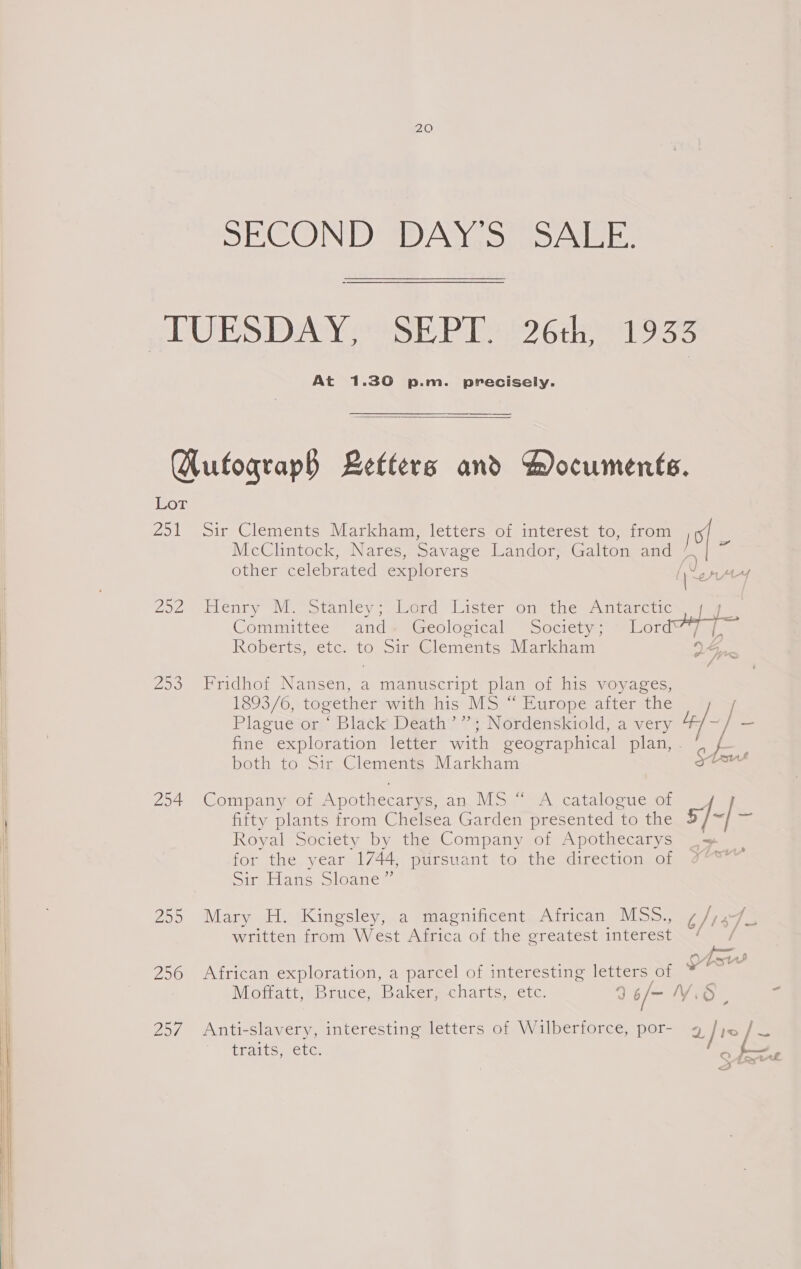 20
SECOND DAY'S SALE.
TUESDAY, SEPT. 26th, 1933
At 1.30 p.m. precisely.
Autograph Letters and Documents.
LOT
251 Sir Clements Markham, letters of interest to, from
McClintock, Nares, Savage Landor, Galton and
other celebrated explorers
252 Henry M. Stanley; Lord Lister on the Antarctic
Committee and Geological Society; Lord
Roberts, etc. to Sir Clements Markham
253 Fridhof Nansen, a manuscript plan of his voyages,
1893/6, together with his MS “ Europe after the
Plague or ‘ Black Death ’ ”; Nordenskiold, a very 4/-/-
fine exploration letter with geographical plan,
both to Sir Clements Markham
254 Company of Apothecarys, an MS “ A catalogue of
fifty plants from Chelsea Garden presented to the 5/-/-
Royal Society by the Company of Apothecarys
for the year 1744, pursuant to the direction of
Sir Hans Sloane ”
255 Mary H. Kingsley, a magnificent African MSS.,
written from West Africa of the greatest interest
256 African exploration, a parcel of interesting letters of
Moffatt, Bruce, Baker, charts, etc. 96/- N.S
257 Anti-slavery, interesting letters of Wilberforce, por- 2/10/-
traits, etc.